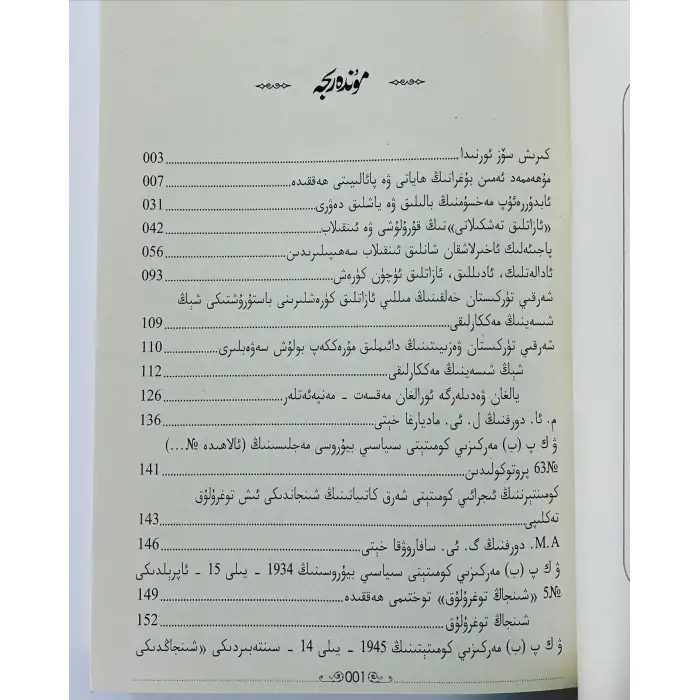 مۇندەرىجە
كىرىش سۆز ئورنىدا......003
مۇھەممەد ئەمىن بۇغرانىڭ ھاياتى ۋە پائالىيىتى ھەققىدە......007
ئابدۇررەئۇپ مەخسۇمنىڭ بالىلىق ۋە ياشلىق دەۋرى......031
«ئازاتلىق تەشكىلاتى»نىڭ قۇرۇلۇشى ۋە ئىنقىلاب......042
پاجىئەلىك ئاخىرلاشقان شانلىق ئىنقىلاب سەھىپىلىرىدىن......056
ئادالەتلىك، ئادىللىق، ئازاتلىق ئۈچۈن كۈرەش......093
شەرقىي تۈركىستان خەلقىنىڭ مىللىي ئازاتلىق كۈرەشلىرىنى باستۇرۇشتىكى شېڭ
شىسەينىڭ مەككارلىقى......109
شەرقىي تۈركىستان ۋەزىيىتىنىڭ دائىملىق مۇرەككەپ بولۇش سەۋەبلىرى......110
شېڭ شىسەينىڭ مەككارلىقى......112
يالغان ۋەدىلەرگە ئورالغان مەقسەت - مەنپەئەتلەر......126
م. ئا. دورفنىڭ ل. ئى. ماديارغا خېتى......136
ۋ ك پ (ب) مەركىزىي كومىتېتى سىياسىي بيۇروسى مەجلىسىنىڭ (ئالاھىدە №...)
№63 پروتوكولىدىن......141
كومىنتېرننىڭ ئىجرائىي كومىتېتى شەرق كاتىباتىنىڭ شىنجاندىكى ئىش توغرۇلۇق
تەكلىپى......143
M.A. دورفنىڭ گ. ئى. سافاروۋقا خېتى......146
ۋ ك پ (ب) مەركىزىي كومىتېتى سىياسىي بيۇروسىنىڭ 1934 - يىلى 15 - ئاپرېلدىكى
№5 «شىنجاڭ توغرۇلۇق» توختىمى ھەققىدە......149
شىنجاڭ توغرۇلۇق......152
ۋ ك پ (ب) مەركىزىي كومىتېتىنىڭ 1945 - يىلى 14 - سىنتەبىردىكى «شىنجاڭدىكى
001